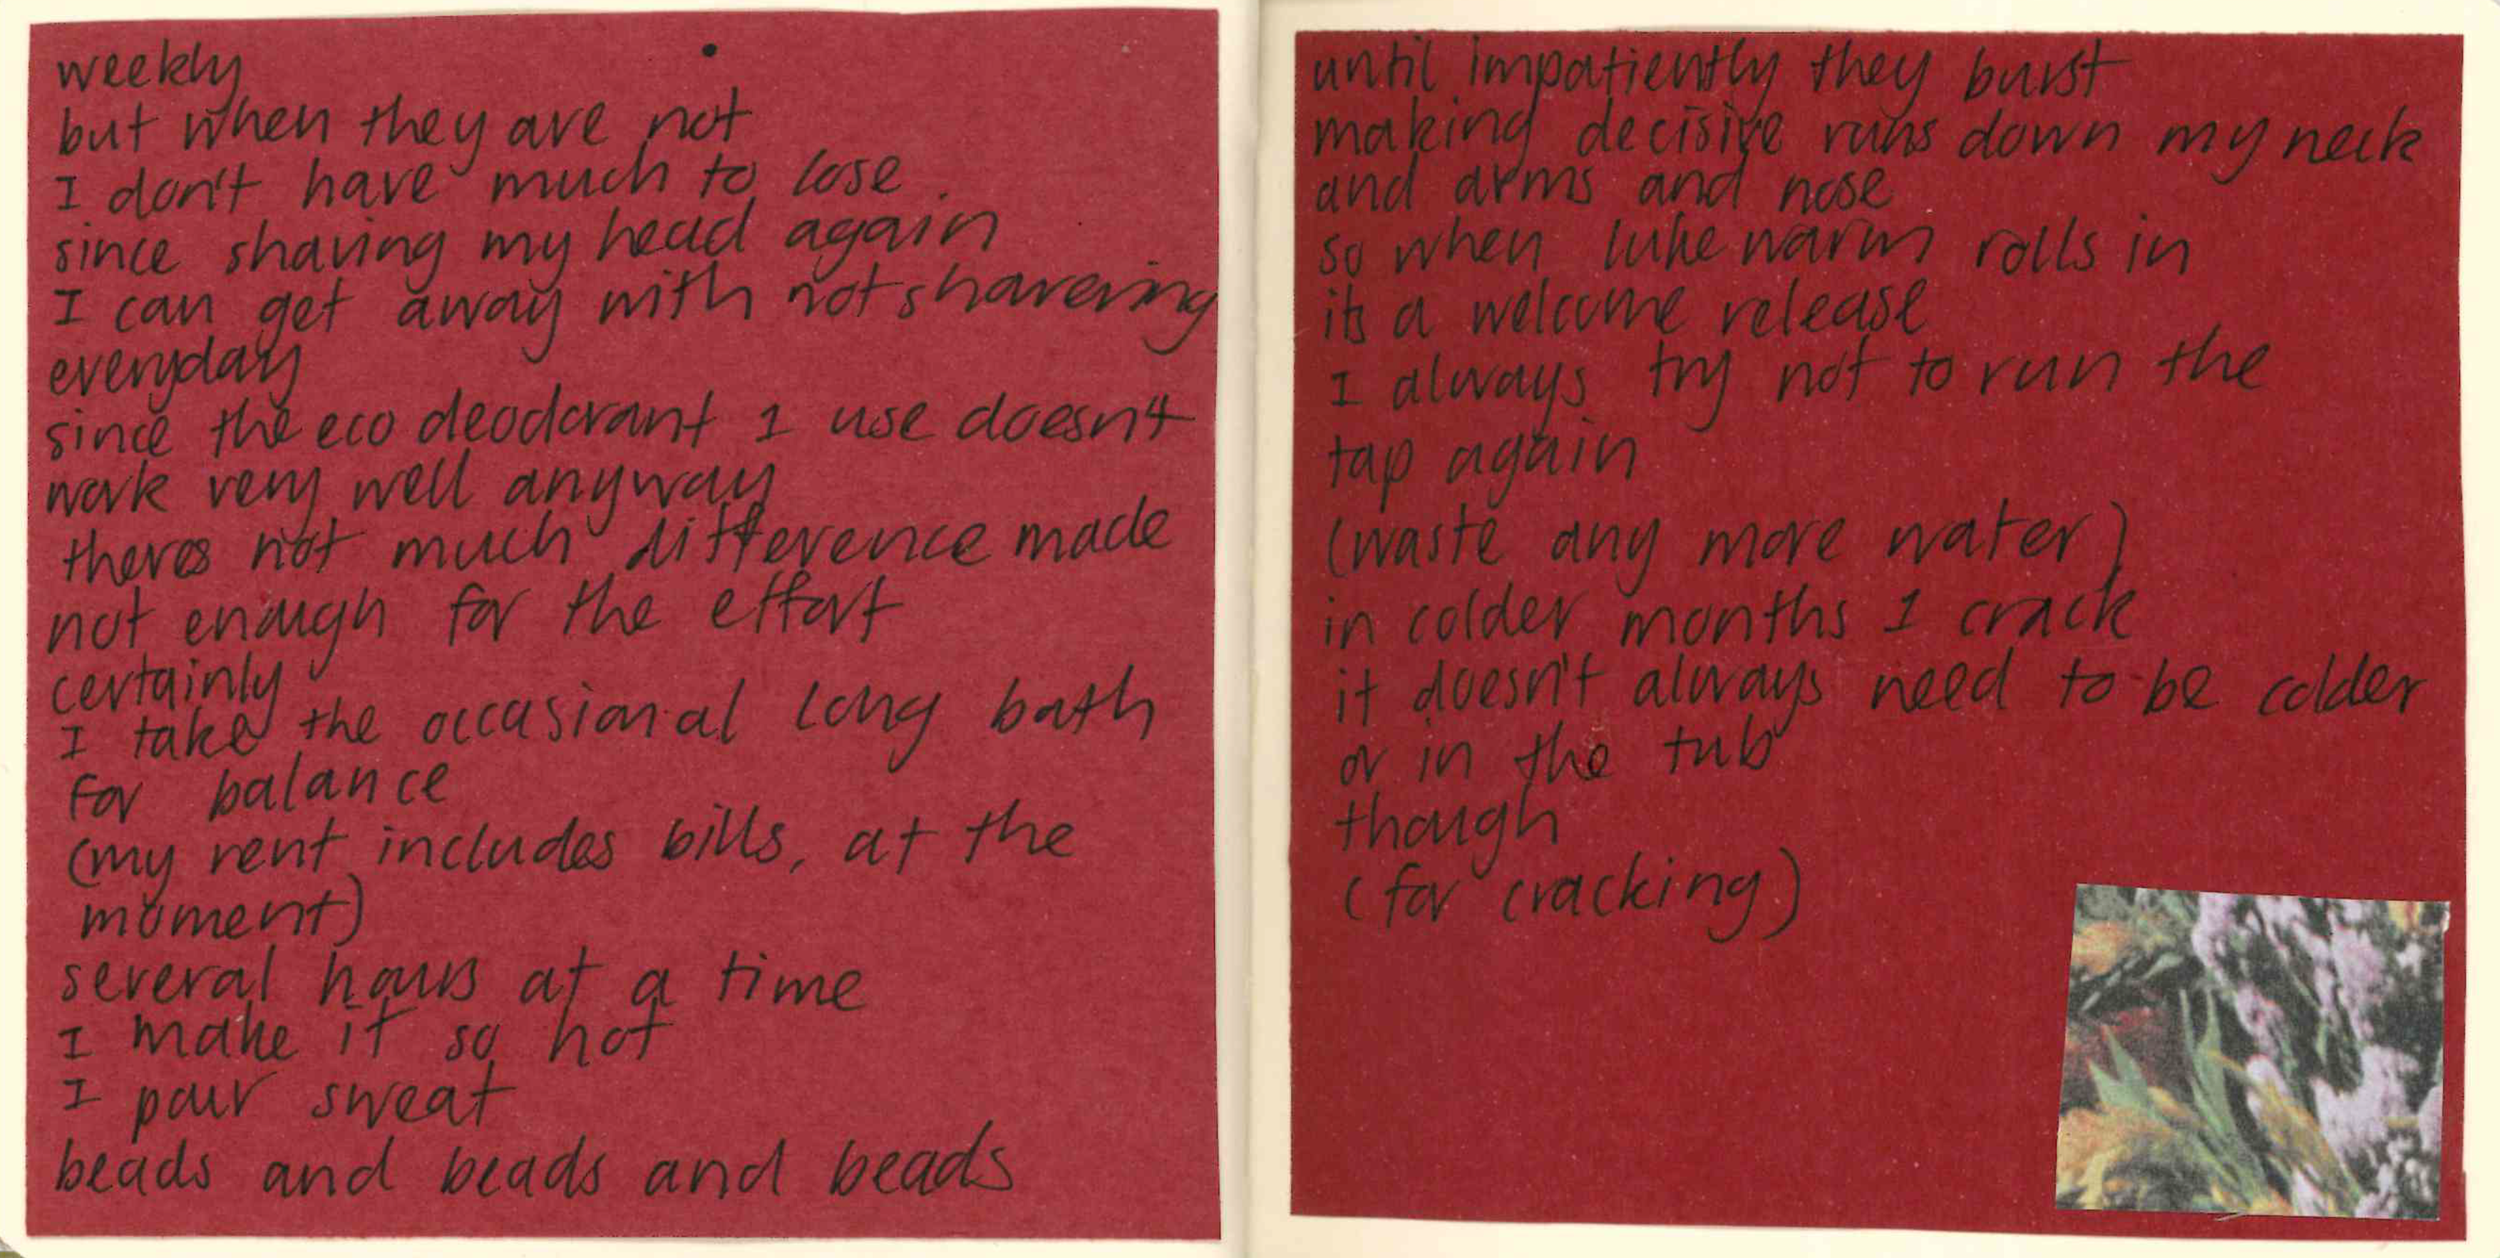 weekly
but when they are not
I don't have much to lose.
since shaving my head again
I can get away with not sharering
everyday
since the eco deodorant I use doesn't
work very well anyway
theres not much difference made
not enough for the effort
certainly
I take the occasional long bath
for balance
(my rent includes bills, at the
moment)
several hours at a time
I make it so hot
I pour sweat
beads and beads and beads
until impatiently they burst
making decisive runs down my neck
and arms and nose
so when lukewarm rolls in
its a welcome release
I always try not to run the
tap again
(waste any more water)
in colder months I crack
it doesn't always need to be colder
or in the tub
though
(for cracking)